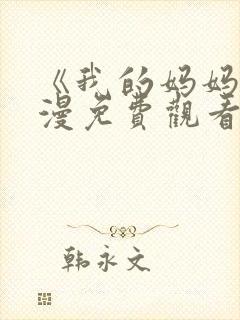 《我的妈妈
漫免費觀看
韩永文